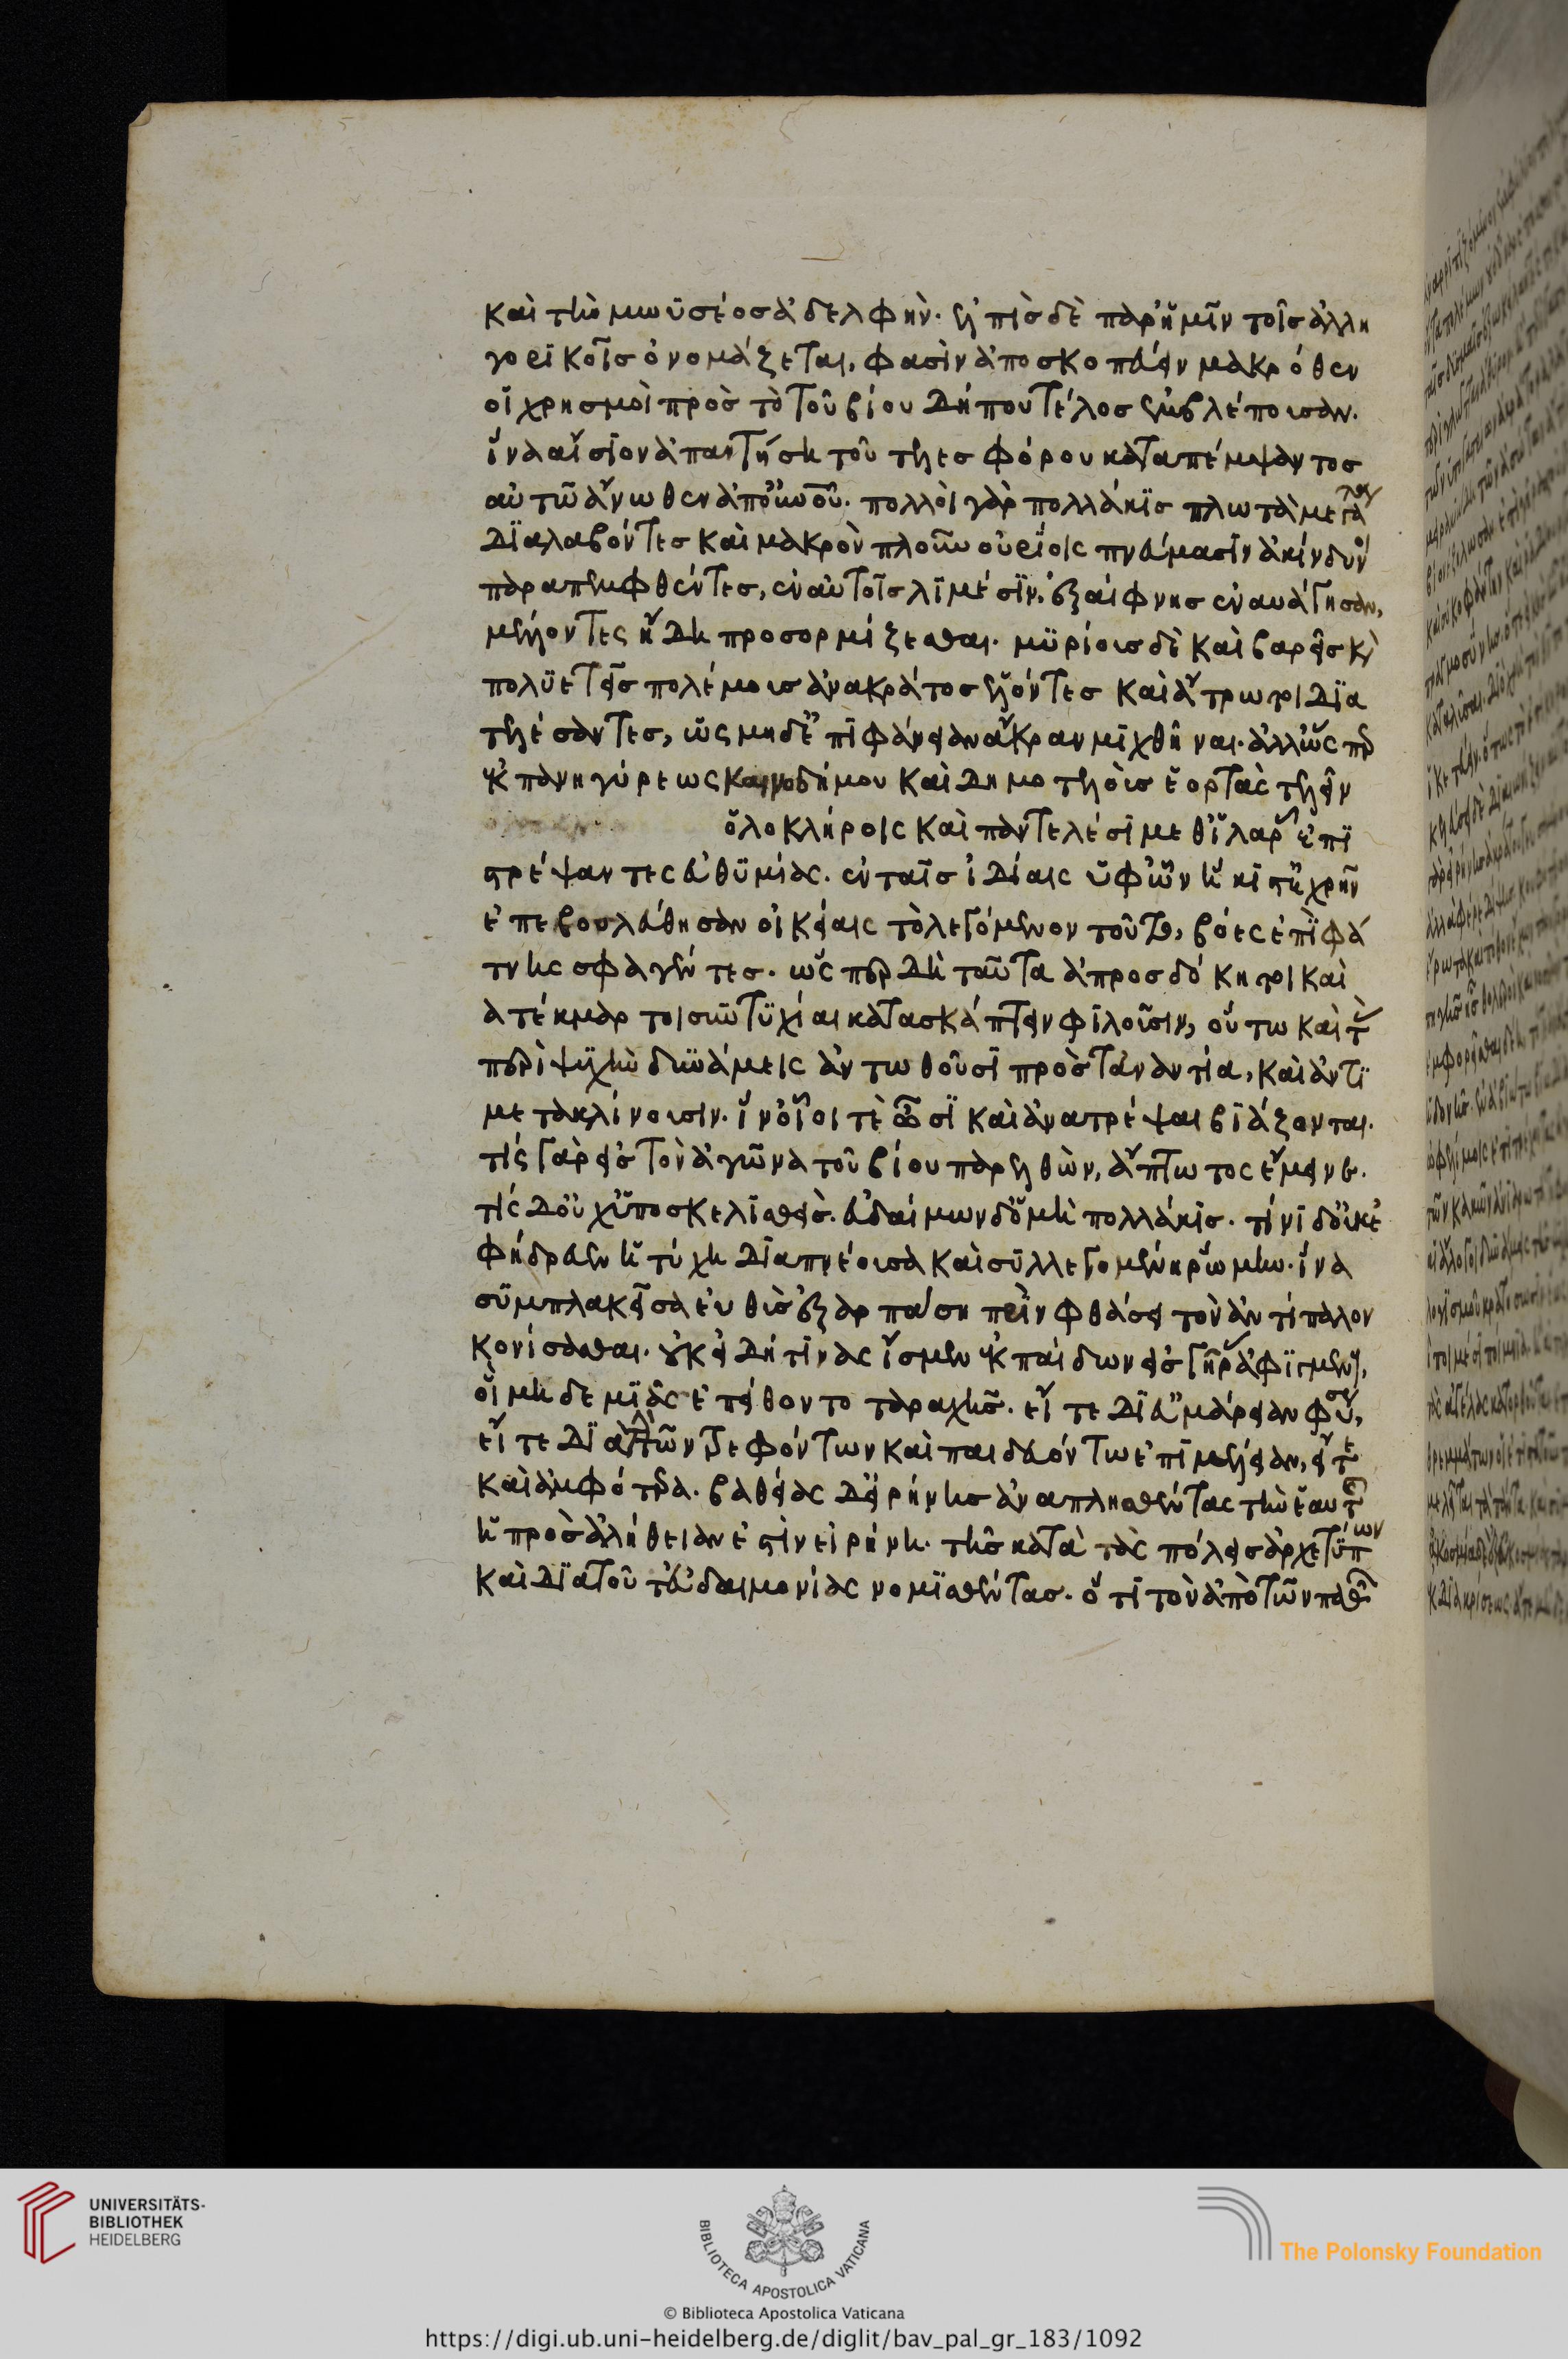 καὶ τὴν μωϋσέος ἀδελφήν· ἐλπὶς δὲ παρ' ἡμῖν τοῖς ἀλλη
γορικοῖς ὀνομάζεται, φασὶν ἀποσκοπεύειν μακρόθεν
οἱ χρησμοὶ πρὸς τὸ τοῦ βίου δήπου τέλος ἐμβλέπουσαν.
ἵνα αἴσιον ἀπαντήσῃ τοῦ τελεσφόρου καταπέμψαντος
αὐτῶ ἄνωθεν ἀπ' οὐνοῦ· πολλοὶ γὰρ πολλάκις πλωτὰ μεγάλα
διαλαβόντες καὶ μακρὸν πλοῦν οὐρίοις πνεύμασιν ἀκίνδυνοι
παραπεμφθέντες, ἐν αὐτοῖς λιμέσιν, ἐξαίφνης ἐναυάγησαν,
μέλλοντες ἤδη προσορμίζεσθαι· μυρίοις δὲ καὶ βαρεῖς καὶ
πολυετεῖς πολέμοις ἀνακράτος ἑλόντες καὶ ἄτρωτοι δια
τελέσαντες, ὡς μηδ' ἐπιφάνειαν ἄκραν μιχθῆναι· ἀλλ' ὥσπερ
ἐκ πανηγύρεως καινοδήμου καὶ δημοτελοῖς ἑορτὰς τελεῖν
ὁλοκλήροις καὶ παντελέσι μεθ' ἱλαρᾶς ἐπι
στρέψαντες εὐθυμίας. ἐν ταῖς ἰδίαις ὑφ' ὧν ἥκιστ' ἐχρῆν
ἐπεβουλεύθησαν οἰκείαις τὸ λεγόμενον τοῦτο, βόες ἐπὶ φά
τνης σφαγέντες. ὥσπερ δὴ ταῦτα ἀπροσδόκητοι καὶ
ἀτέκμαρτοι συντυχίαι κατασκάπτειν φιλοῦσιν, οὕτω καὶ τὰς
περὶ ψυχὴν δυνάμεις ἀντωθοῦσι πρὸς τἀναντία, καὶ ἀντι
μετακλίνουσιν. ἵν' οἷοί τέ ὦσι καὶ ἀνατρέψαι βιάζονται.
τίς γὰρ εἰς τὸν ἀγῶνα τοῦ βίου παρελθὼν, ἄπτωτος ἔμεινε.
τίς δ' οὐχ ὑποσκελισθείς. εὐδαίμων δ' ὁ μὴ πολλάκις. τίνι δ' οὐκ ἐ
φήδρευεν ἡ τύχη διαπνέουσα καὶ συλλεγομένη ῥώμην. ἵνα
συμπλακεῖσα εὐθὺς ἐξαρπάσῃ πρὶν φθάσει τὸν ἀντίπαλον
κονίσασθαι. οὐκ ἤδη τινὰς ἴσμεν ἐκ παίδων εἰς γῆρας ἀφιγμένους,
οἳ μηδεμιᾶς ἐπείθοντο ταραχῆς. εἴτε δι' εὐμάρειαν φύσεως,
εἴτε διὰ τῶν τρεφόντων καὶ παιδευόντων ἐπιμέλειαν, εἴτε
καὶ ἀμφότερα. βαθείας δ' εἰρήνης ἀναπλησθέντας τὴν ἑαυτοῖς
ἣ πρὸς ἀλήθειαν ἐστὶν εἰρήνη. τῆς κατὰ τὰς πόλεις ἀρχετύπων
καὶ διὰ τοῦτ' εὐδαιμονίας νομισθέντας. ὅτι τὸν ἀπὸ τῶν παθῶν
UNIVERSITÄTS-
BIBLIOTHEK
HEIDELBERG
BIBLIOTECA APOSTOLICA VATICANA
The Polonsky Foundation
© Biblioteca Apostolica Vaticana
https://digi.ub.uni-heidelberg.de/diglit/bav_pal_gr_183/1092